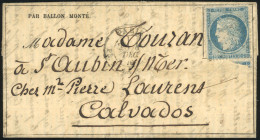 PAR BALLON MONTÉ.
Madame Touzan
à St Aubin s/ Mer
Chez Mr Pierre Laurens
Calvados